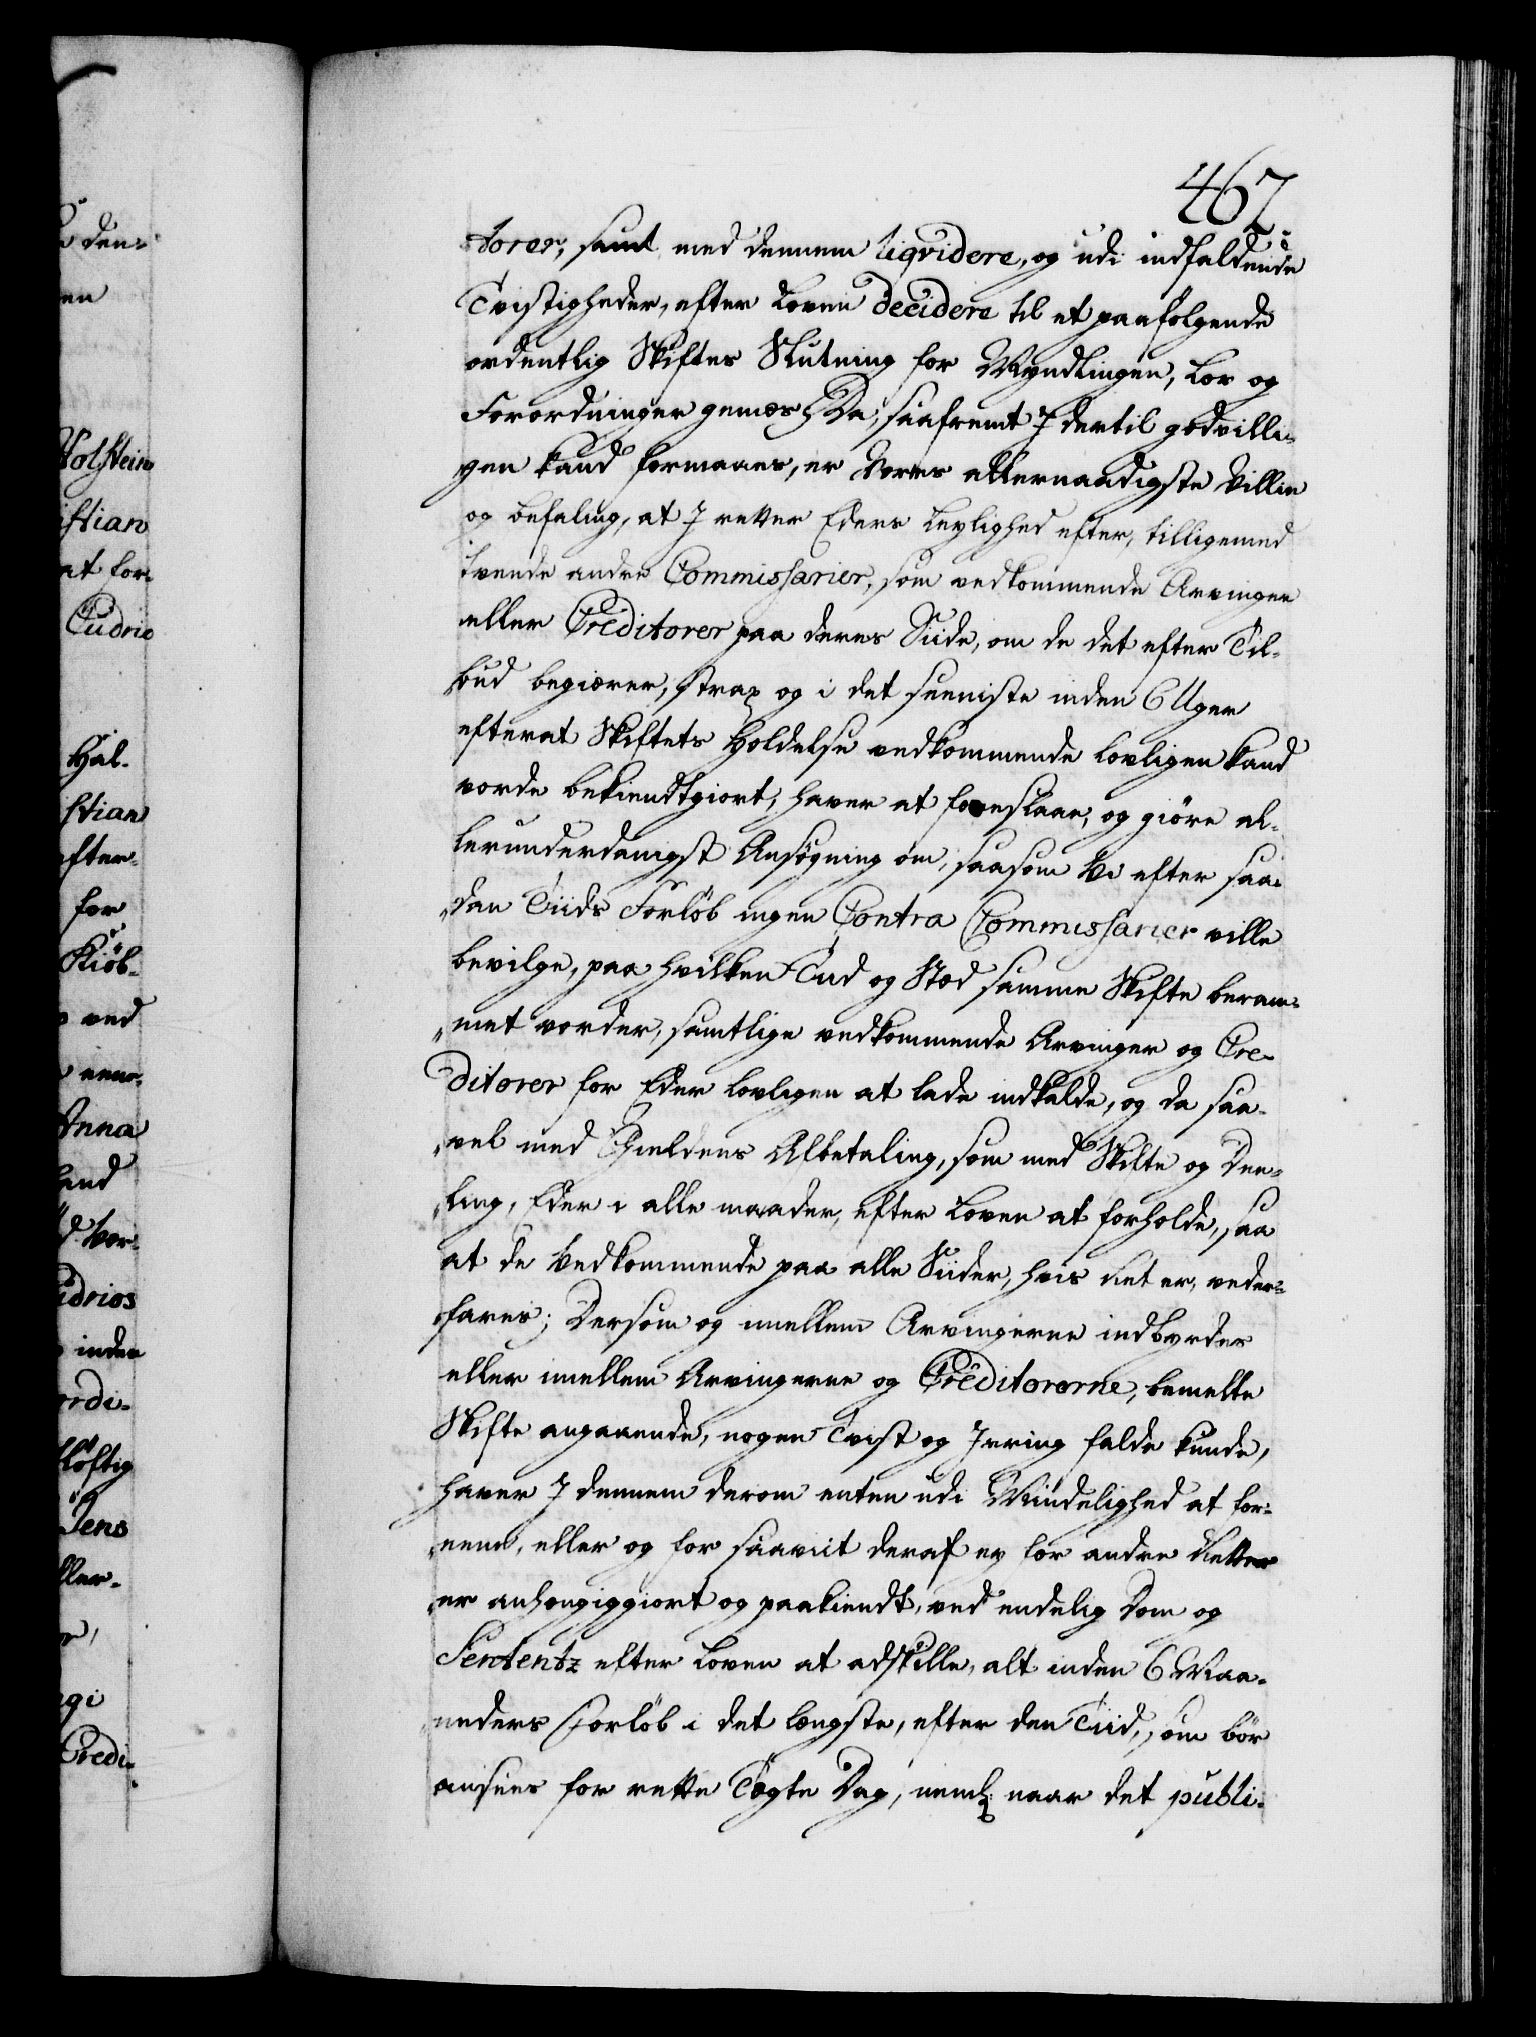 467
torer, samt med dennem liqvidere, og udi indfaldende
Tvistigheder, efter Loven decidere til et paafolgende
ordentlig Skiftes Slutning for Myndlingen, Lov og
Forordninger gemæs; Da, saafremt I dertil godvilli-
gen kand formaaes, er Vores allernaadigste Villie
og befaling, at I retter Eders Leylighed efter, tilligemed
tvende andre Commissarier, som vedkommende Arvinger
eller Creditorer paa deres Siide, om de det efter Til-
bud begiærer, strax og i det seeniste inden 6 Uger
efterat Skiftets Holdelse vedkommende lovligen kand
vorde bekiendtgiort, haver at foreslaae, og giöre al-
lerunderdanigst Ansögning om, saasom Vi efter saa-
dan Tiids Forlöb ingen Contra Commissarier ville
bevilge, paa hvilken Tiid og Stæd samme Skifte beram-
met vorder, samtlige vedkommende Arvinger og Cre-
ditorer for Eder lovligen at lade indkalde, og da saa-
vel med Gieldens Afbetaling, som med Skifte og Dee-
ling, Eder i alle maader, efter Loven at forholde, saa
at de Vedkommende paa alle Siider, hvis Ret er, veder-
fares; Dersom og imellem Arvingerne indbyrdes
eller imellem Arvingerne og Creditorerne, bemelte
Skifte angaaende, nogen Tvist og Irring falde kunde,
haver I dennem derom enten udi Mindelighed at for-
eene, eller og for saaviit deraf ey for andre Retter
er anhængiggiort og paakiendt, ved endelig Dom og
Sententz efter Loven at adskille, alt inden 6 Maa-
neders Forlöb i det længste, efter den Tiid, som bör
ansees for rette Tægte Dag, neml: naar det publi-